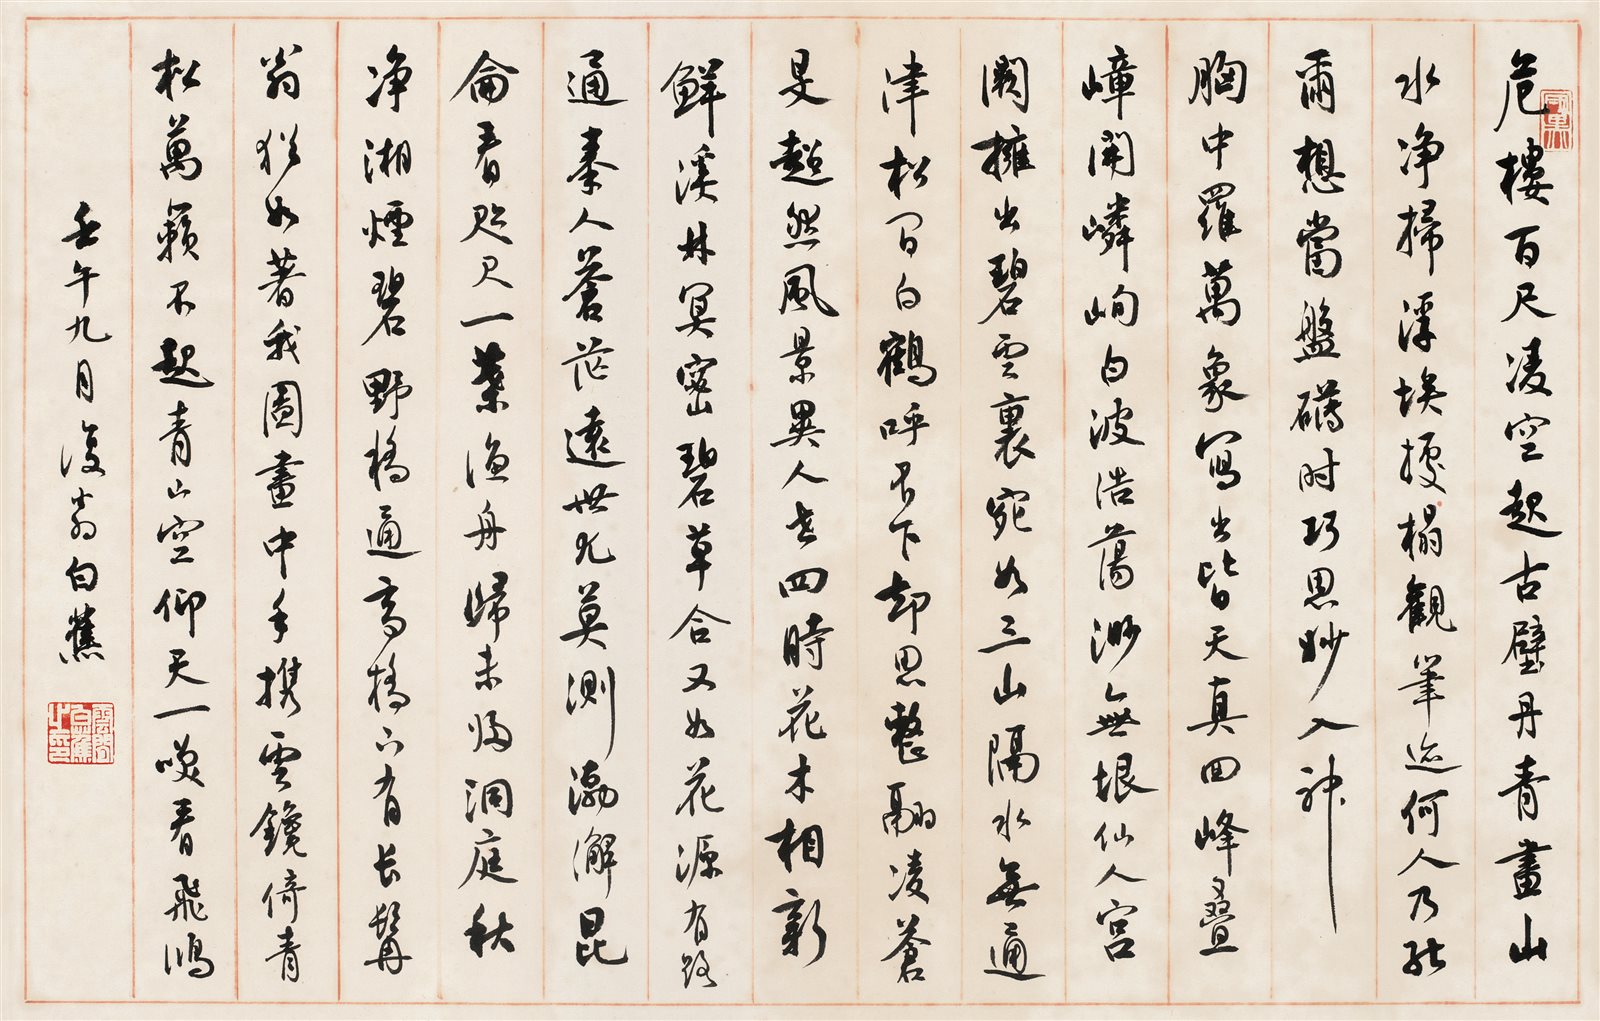 危樓百尺凌空起古壁丹青畫山
水净掃浮埃據榻觀筆迹何人乃能
爾想當盤礴时巧思妙入神
胸中羅萬象寫出皆天真四峰疊
嶂開嶙峋白波浩蕩渺無垠仙人宮
闕擁出碧雲裏宛如三山隔水無通
津松間白鶴呼不下却思整翮凌蒼
旻超然風景異人世四時花木相新
鮮溪林冥密碧草合又如花源有路
通秦人蒼茫遠世莫測渤澥昆
侖看咫尺一葉漁舟歸未歸洞庭秋
净湘煙碧野橋通高橋下有长髯
翁猶如著我圖畫中手携雲鑱倚青
松萬籟不起青山空仰天一咲看飛鴻
壬午九月復翁白蕉
雲間白蕉之印